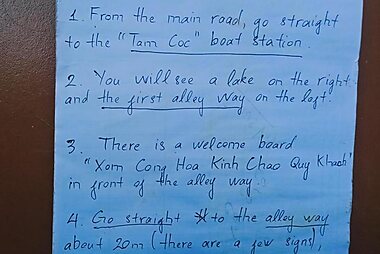 1. From the main road, go straight
to the "Tam Coc" boat station.
2. You will see a lake on the right
and the first alley way on the left.
3. There is a welcome board
"Xom Cong Hoa Kinh Chao Quy Khach"
in front of the alley way.
4. Go straight to the alley way
about 20m (there are a few signs),